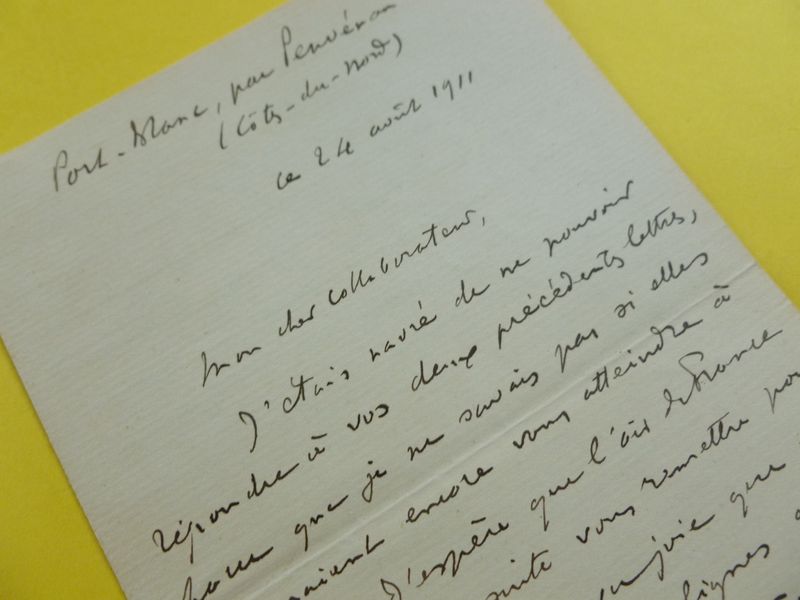 Port-Blanc, par Penvénan
(Côtes-du-Nord)
ce 24 août 1911
Mon cher collaborateur,
J'étais navré de ne pouvoir
répondre à vos deux précédents lettres,
parce que je ne savais pas si elles
encore vous atteindre à
J'espère que l'air de France
suite vous remettre
joie que
lignes